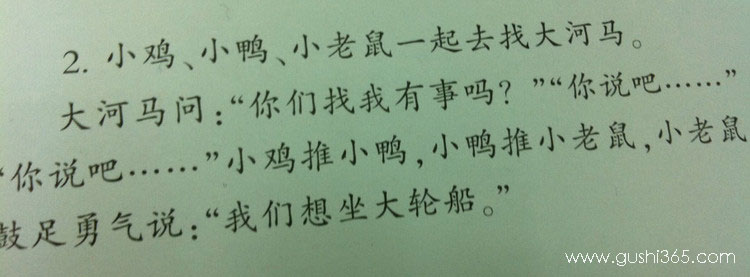 2. 小鸡、小鸭、小老鼠一起去找大河马。
大河马问:“你们找我有事吗？”“你说吧……”
“你说吧……”小鸡推小鸭,小鸭推小老鼠,小老鼠
鼓足勇气说:“我们想坐大轮船。”
www.gushi365.com